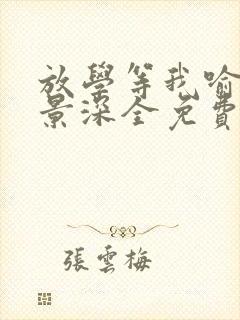 放學等我喻
景深全免費
張雲梅